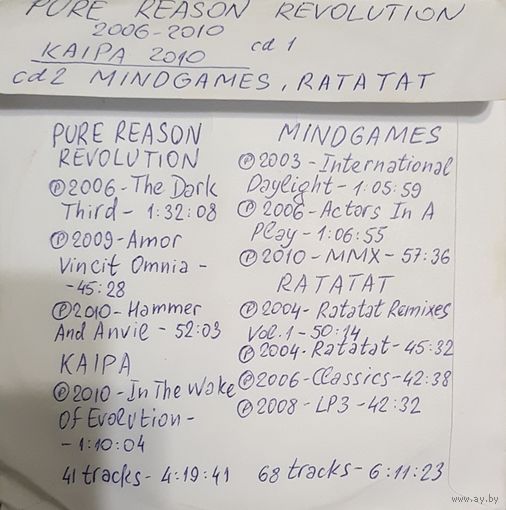 PURE REASON REVOLUTION
2006-2010
KAIPA 2010 cd 1
cd2 MINDGAMES, RATATAT
PURE REASON
REVOLUTION
Ⓟ2006-The Dark
Third- 1:32:08
Ⓟ2009-Amor
Vincit Omnia -
-45:28
Ⓟ2010-Hammer
And Anvie - 52:03
KAIPA
Ⓟ2010-In The Wake
Of Evolution-
-1:10:04
41 tracks- 4:19:41
MINDGAMES
Ⓟ2003-International
Daylight- 1:05:59
Ⓟ2006-Actors In A
Play- 1:06:55
Ⓟ2010-MMX- 57:36
RATATAT
Ⓟ2004-Ratatat Remixes
Vol.1-50:14
Ⓟ2004-Ratatat-45:32
Ⓟ2006-Classics-42:38
Ⓟ2008-LP3-42:32
68 tracks-6:11:23
www.ay.by